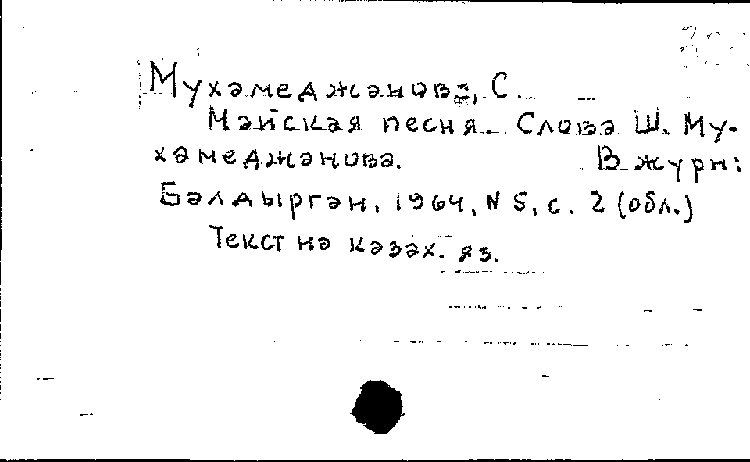 Мухамеджанова, С.
Майская песня. Слова Ш. Му-
хамеджанова. В журн:
Балдырган, 1964, N 5, с. 2 (обл.)
Текст на казах. яз.